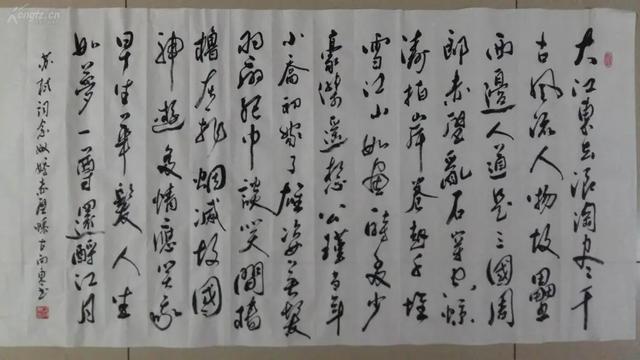 Kongfz.com
大江東去浪淘尽千
古風流人物故壘
西邊人道是三國周
郎赤壁亂石穿空惊
濤拍岸卷起千堆
雪江山如畫時多少
豪傑遥想公瑾当年
小喬初嫁了雄姿英發
羽扇綸巾談笑間檣
櫓灰飛烟滅故國
神遊多情應笑我
早生華髮人生
如夢一尊還酹江月
苏轼詞念奴娇赤壁懷古